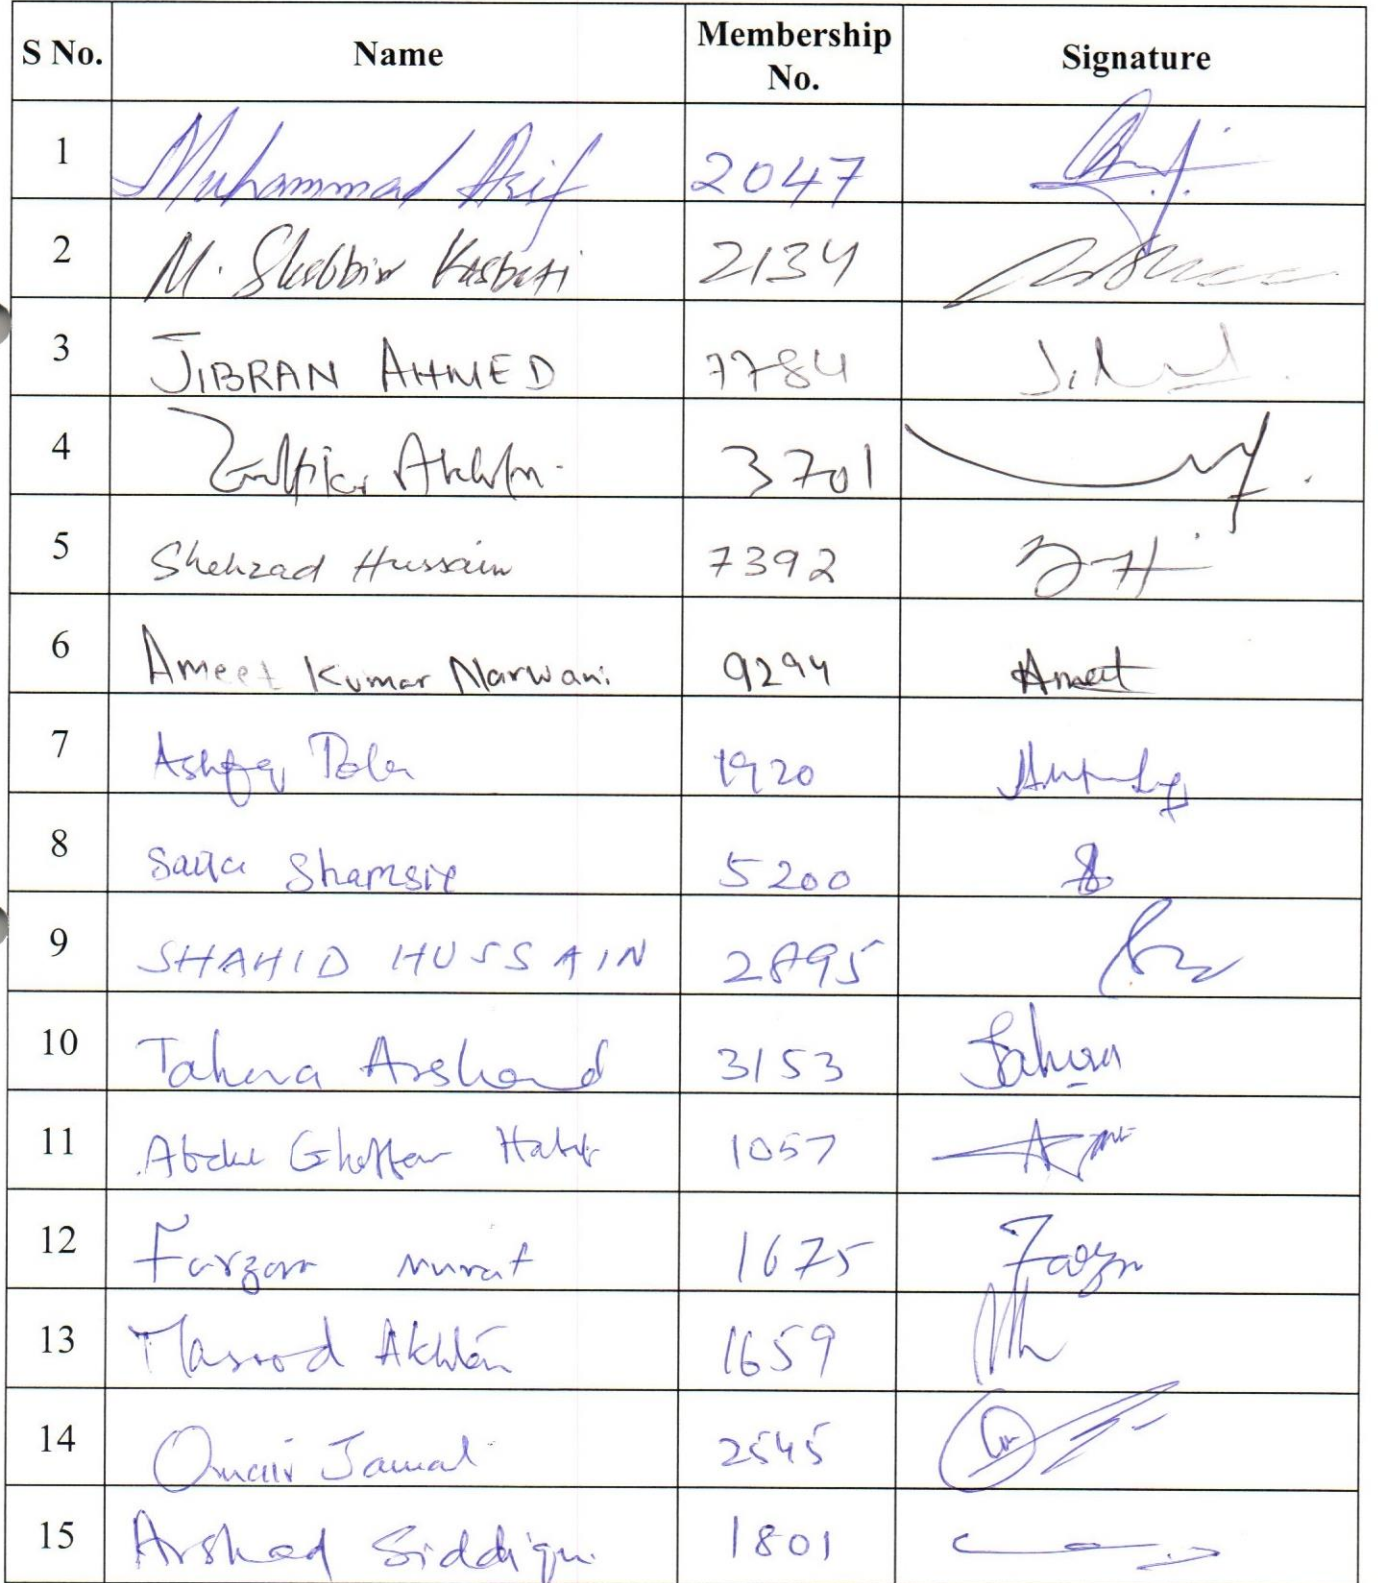 S No. Name Membership No. Signature
1 Muhammad Asif 2047
2 M. Shabbir Kasbati 2134
3 JIBRAN AHMED 7784
4 Zulfikar Akhtar 3701
5 Shehzad Hussain 7392
6 Ameet Kumar Narwani 9294 Ameet
7 Ashfaq Tola 1920
8 Sana Shamsie 5200
9 SHAHID HUSSAIN 2895
10 Tahera Arshad 3153
11 Abdul Ghaffar Habib 1057
12 Farzana Munaf 1675
13 Masood Akhtar 1659
14 Omair Jamal 2545
15 Arshad Siddiqui 1801